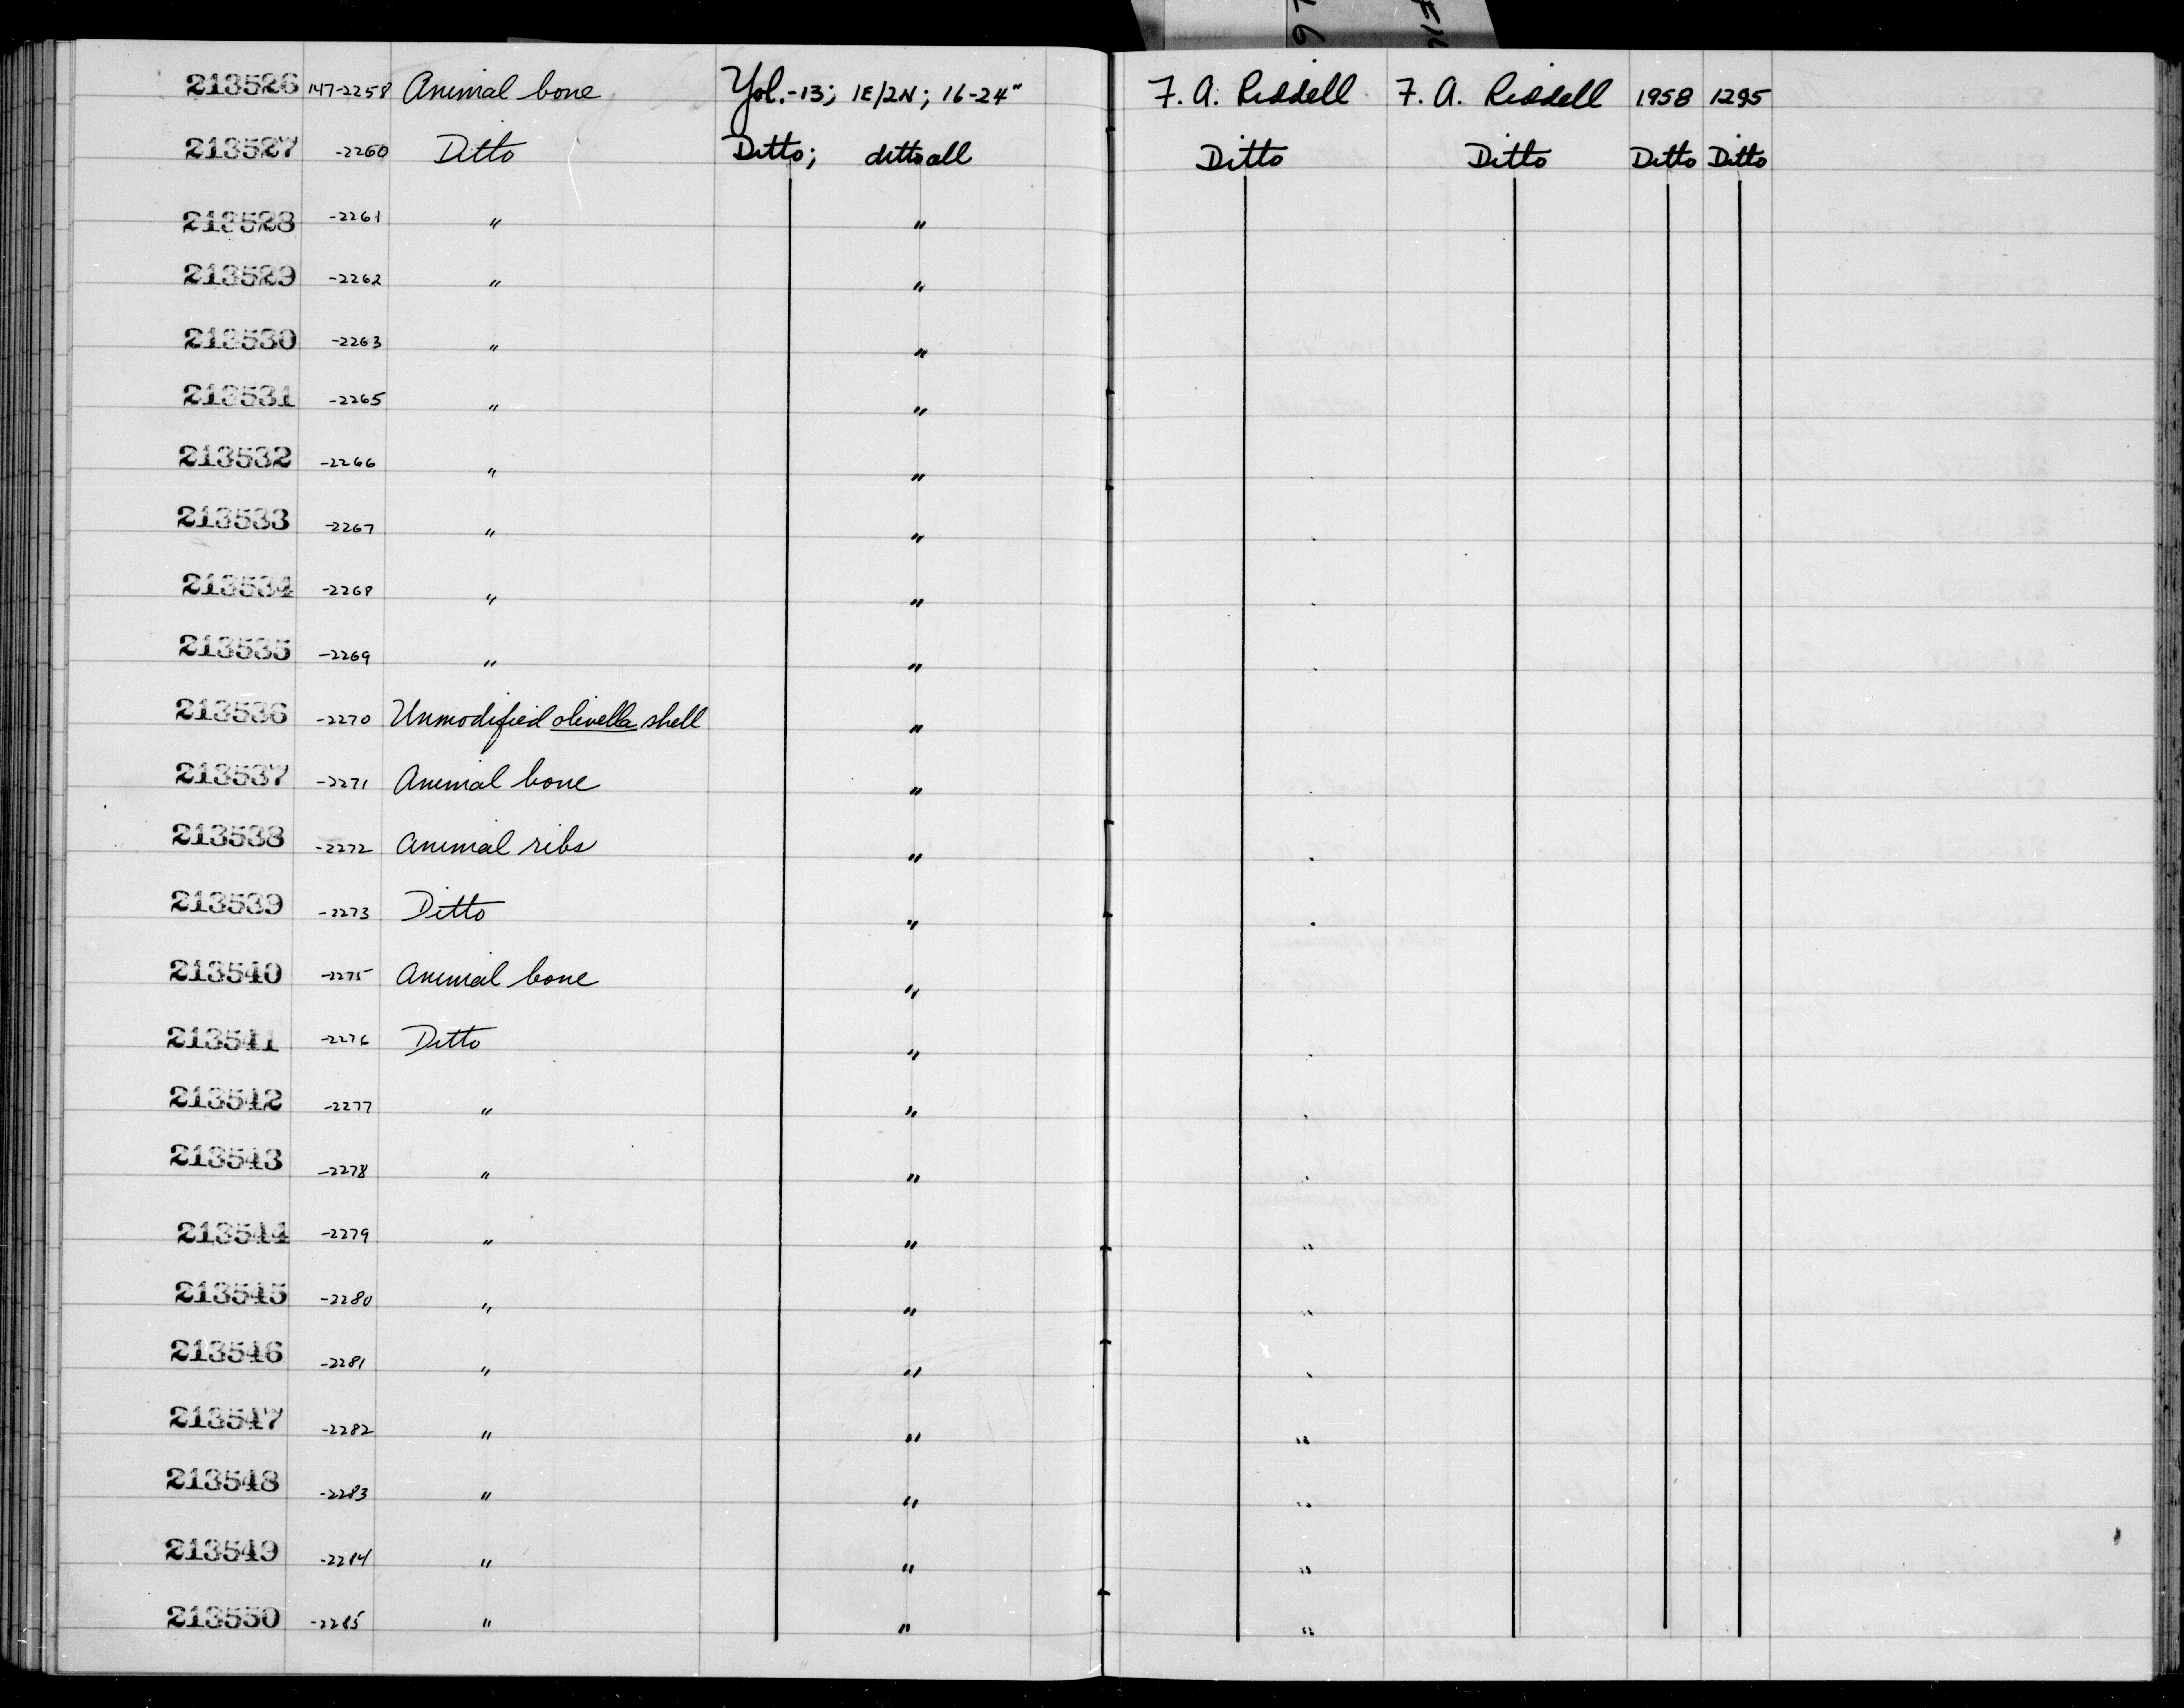 213526 147-2258 Animal bone Yol.-13; 1E/2N; 16-24" F. A. Riddell F. A. Riddell 1958 1295
213527 -2260 Ditto Ditto; ditto all Ditto Ditto Ditto Ditto
213528 -2261 " "
213529 -2262 " "
213530 -2263 " "
213531 -2265 " "
213532 -2266 " "
213533 -2267 " "
213534 -2268 " "
213535 -2269 " "
213536 -2270 Unmodified olivella shell "
213537 -2271 Animal bone "
213538 -2272 Animal ribs "
213539 -2273 Ditto "
213540 -2275 Animal bone "
213541 -2276 Ditto "
213542 -2277 " "
213543 -2278 " "
213544 -2279 " " "
213545 -2280 " " "
213546 -2281 " "
213547 -2282 " " "
213548 -2283 " " "
213549 -2284 " " "
213550 -2285 " " "